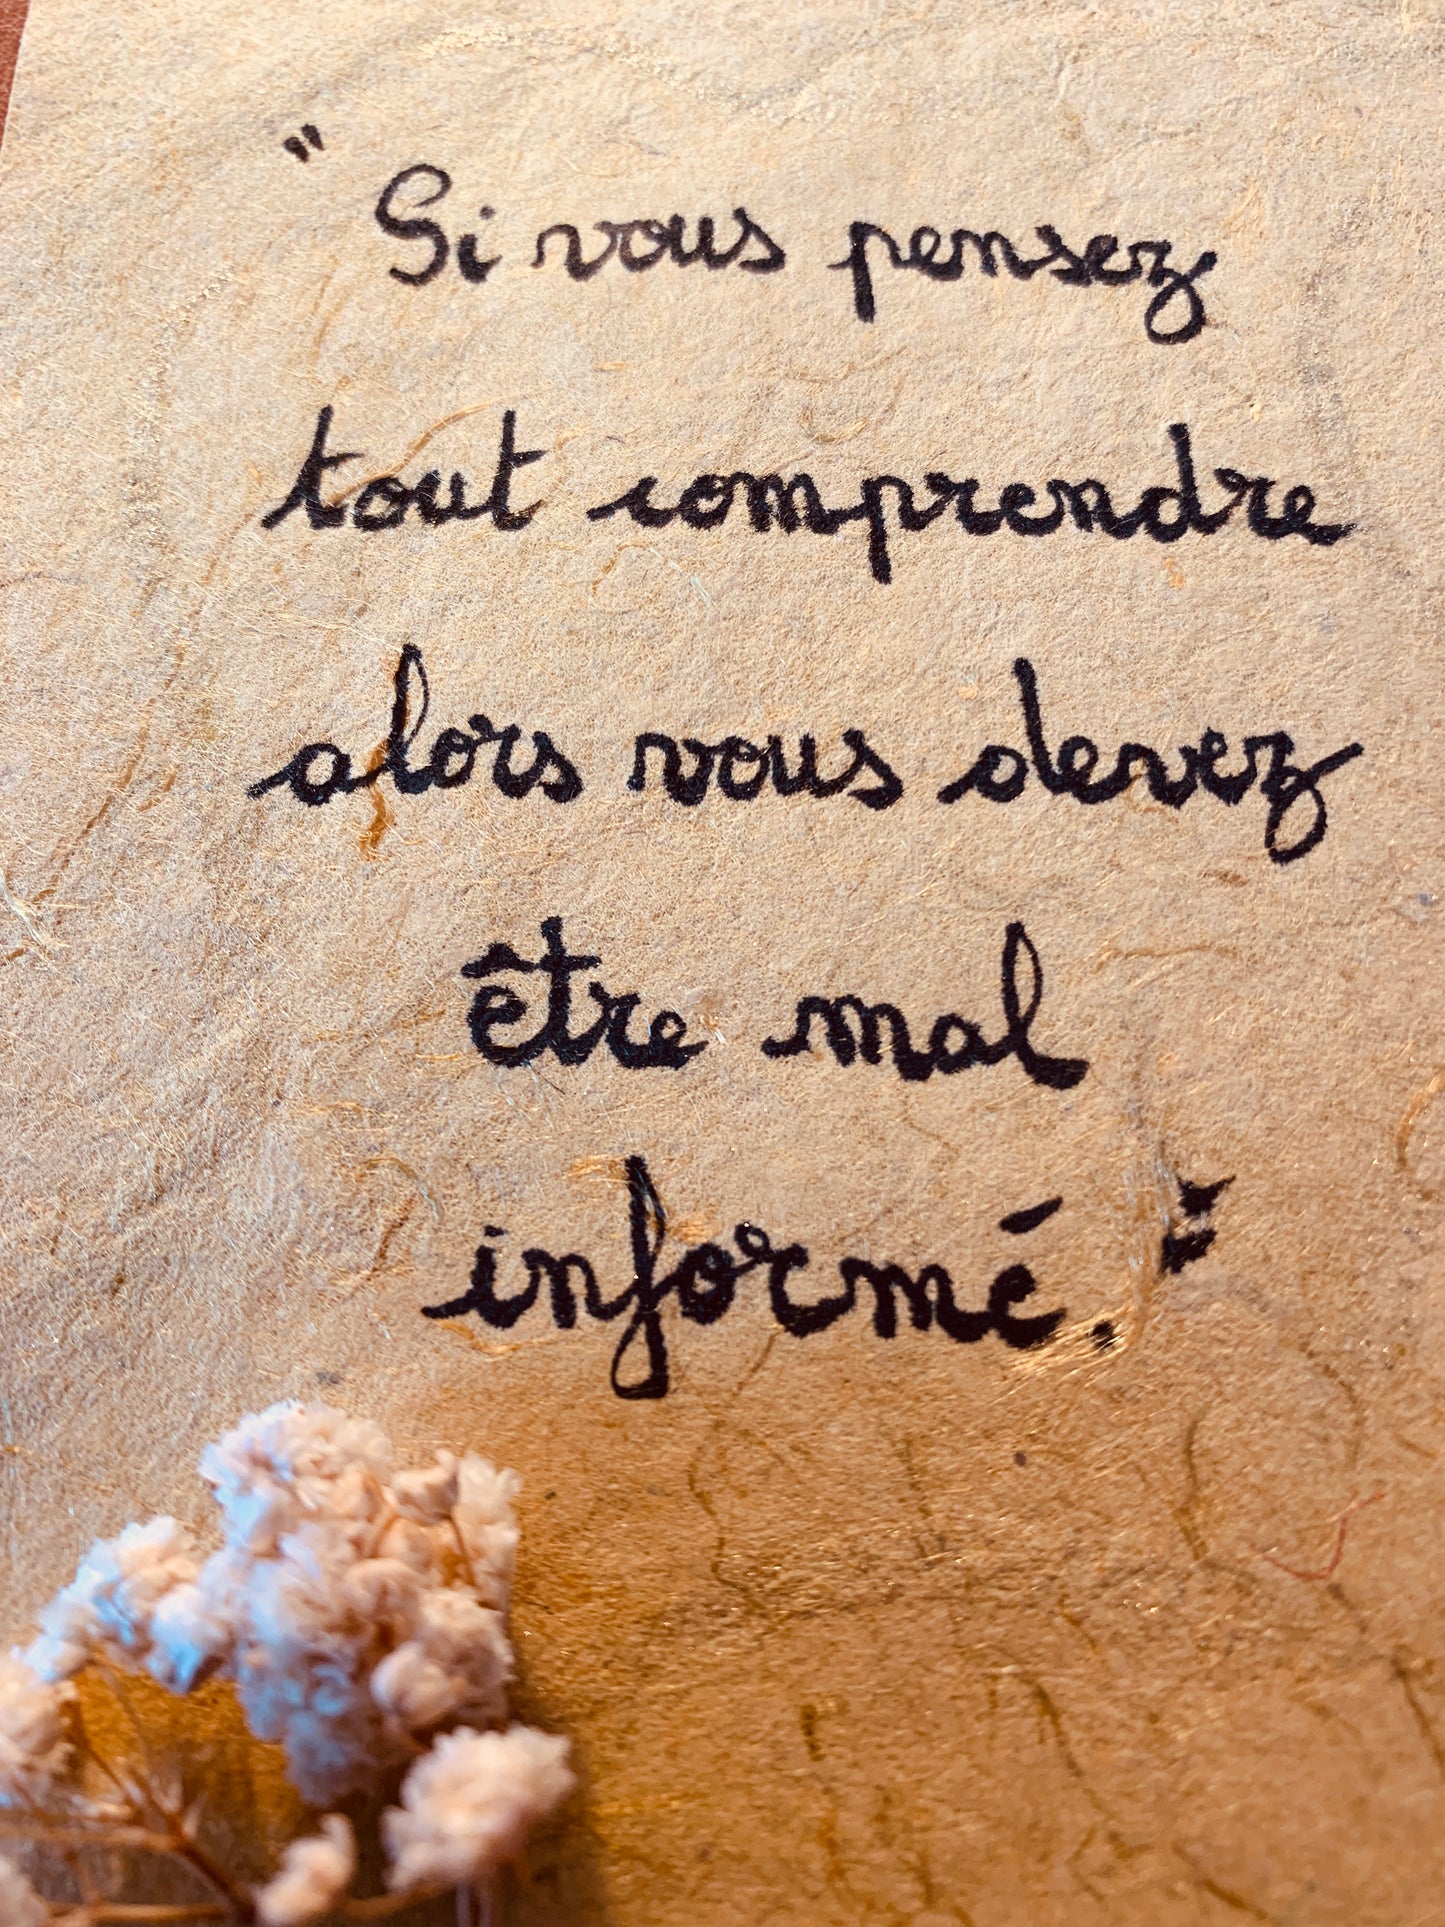 " Si vous pensez
tout comprendre
alors vous devez
être mal
informé. "